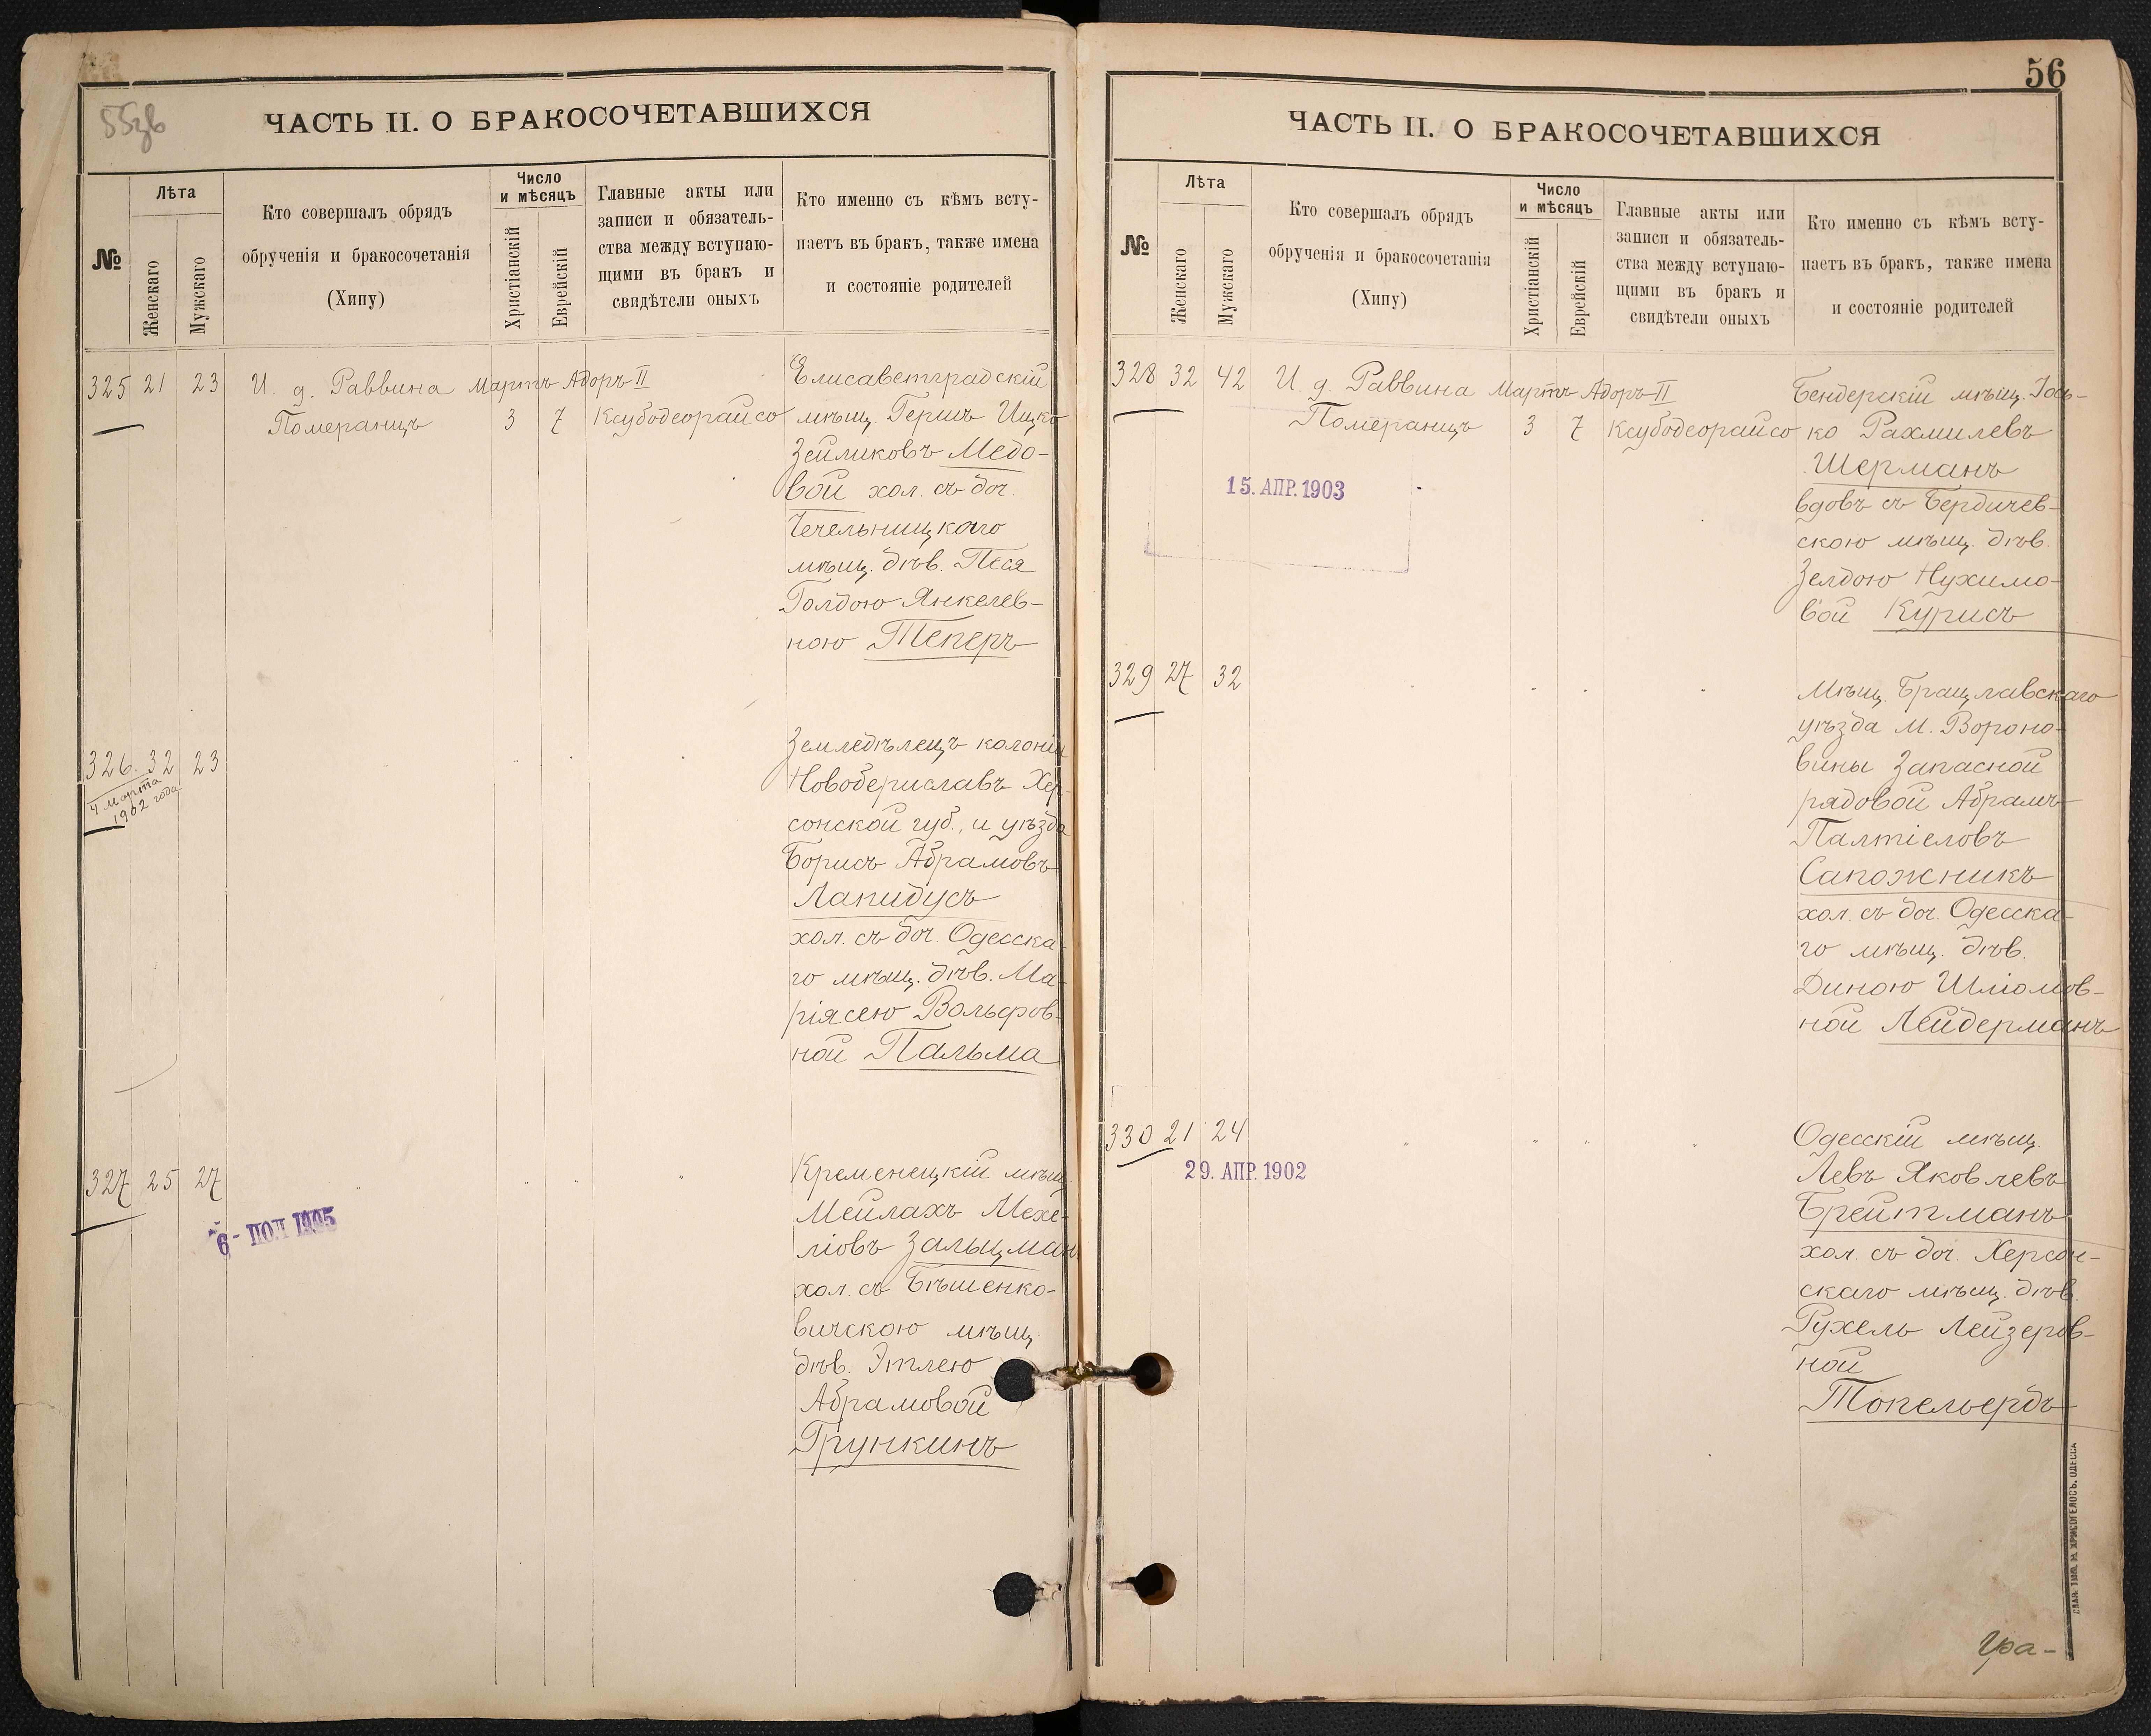 55зв
ЧАСТЬ II. О БРАКОСОЧЕТАВШИХСЯ
№
Лѣта
Женскаго
Мужскаго
Кто совершалъ обрядъ
обрученія и бракосочетанія
(Хипу)
Число
и мѣсяцъ
Христіанскій
Еврейскій
Главные акты или
записи и обязатель-
ства между вступаю-
щими въ бракъ и
свидѣтели оныхъ
Кто именно съ кѣмъ всту-
паетъ въ бракъ, также имена
и состояніе родителей
325 21 23 И. д. Раввина Мартъ Адоръ II
Померанцъ 3 7 Ксубодеорайсо
Елисаветградскій
мѣщ. Гершъ Ицко
Зейликовъ Медо-
вой хол. съ доч.
Чечельницкаго
мѣщ. дѣв. Песя
Голдою Янкелев-
ною Теперъ
326. 32 23
4 марта
1902 года
Земледѣлецъ колоніи
Новобериславъ Хер-
сонской губ., и уѣзда
Борисъ Абрамовъ
Лапидусъ
хол. съ доч. Одесска-
го мѣщ. дѣв. Ма-
ріясею Вольфов-
ной Пальма
327 25 27
6 - ІЮЛ 1905
Кременецкій мѣщ.
Мейлахъ Мехе-
ліовъ Зальцман
хол. съ Бѣшенко-
вичскою мѣщ.
дѣв. Этлею
Абрамовой
Грункинъ
56
ЧАСТЬ II. О БРАКОСОЧЕТАВШИХСЯ
№
Лѣта
Женскаго
Мужскаго
Кто совершалъ обрядъ
обрученія и бракосочетанія
(Хипу)
Число
и мѣсяцъ
Христіанскій
Еврейскій
Главные акты или
записи и обязатель-
ства между вступаю-
щими въ бракъ и
свидѣтели оныхъ
Кто именно съ кѣмъ всту-
паетъ въ бракъ, также имена
и состояніе родителей
328 32 42 И. д. Раввина Мартъ Адоръ II
Померанцъ 3 7 Ксубодеорайсо
15. АПР. 1903
Бендерскій мѣщ. Іось-
ко Рахмилевъ
Шерманъ
вдовъ съ Бердичев-
скою мѣщ. дѣв.
Зелдою Нухимо-
вой Курисъ
329 27 32
Мѣщ. Брацлавскаго
уѣзда м. Вороно-
вицы Запасной
рядовой Абрамъ
Палтіеловъ
Сапожникъ
хол. съ доч. Одесска-
го мѣщ. дѣв.
Диною Шліомов-
ной Лейдерманъ
330 21 24
29. АПР. 1902
Одесскій мѣщ.
Левъ Яковлевъ
Брейтманъ
хол. съ доч. Херсон-
скаго мѣщ. дѣв.
Рухель Лейзеров-
ной
Топельердъ
Гра-